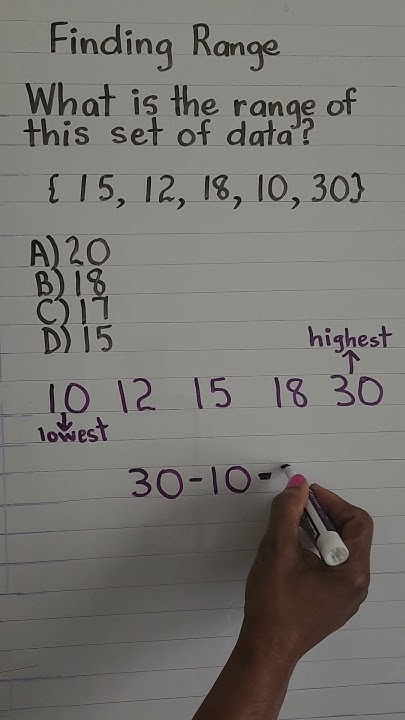 Finding Range
What is the range of
this set of data?
{ 15, 12, 18, 10, 30}
A) 20
B) 18
C) 17
D) 15
highest
10 12 15 18 30
lowest
30-10=